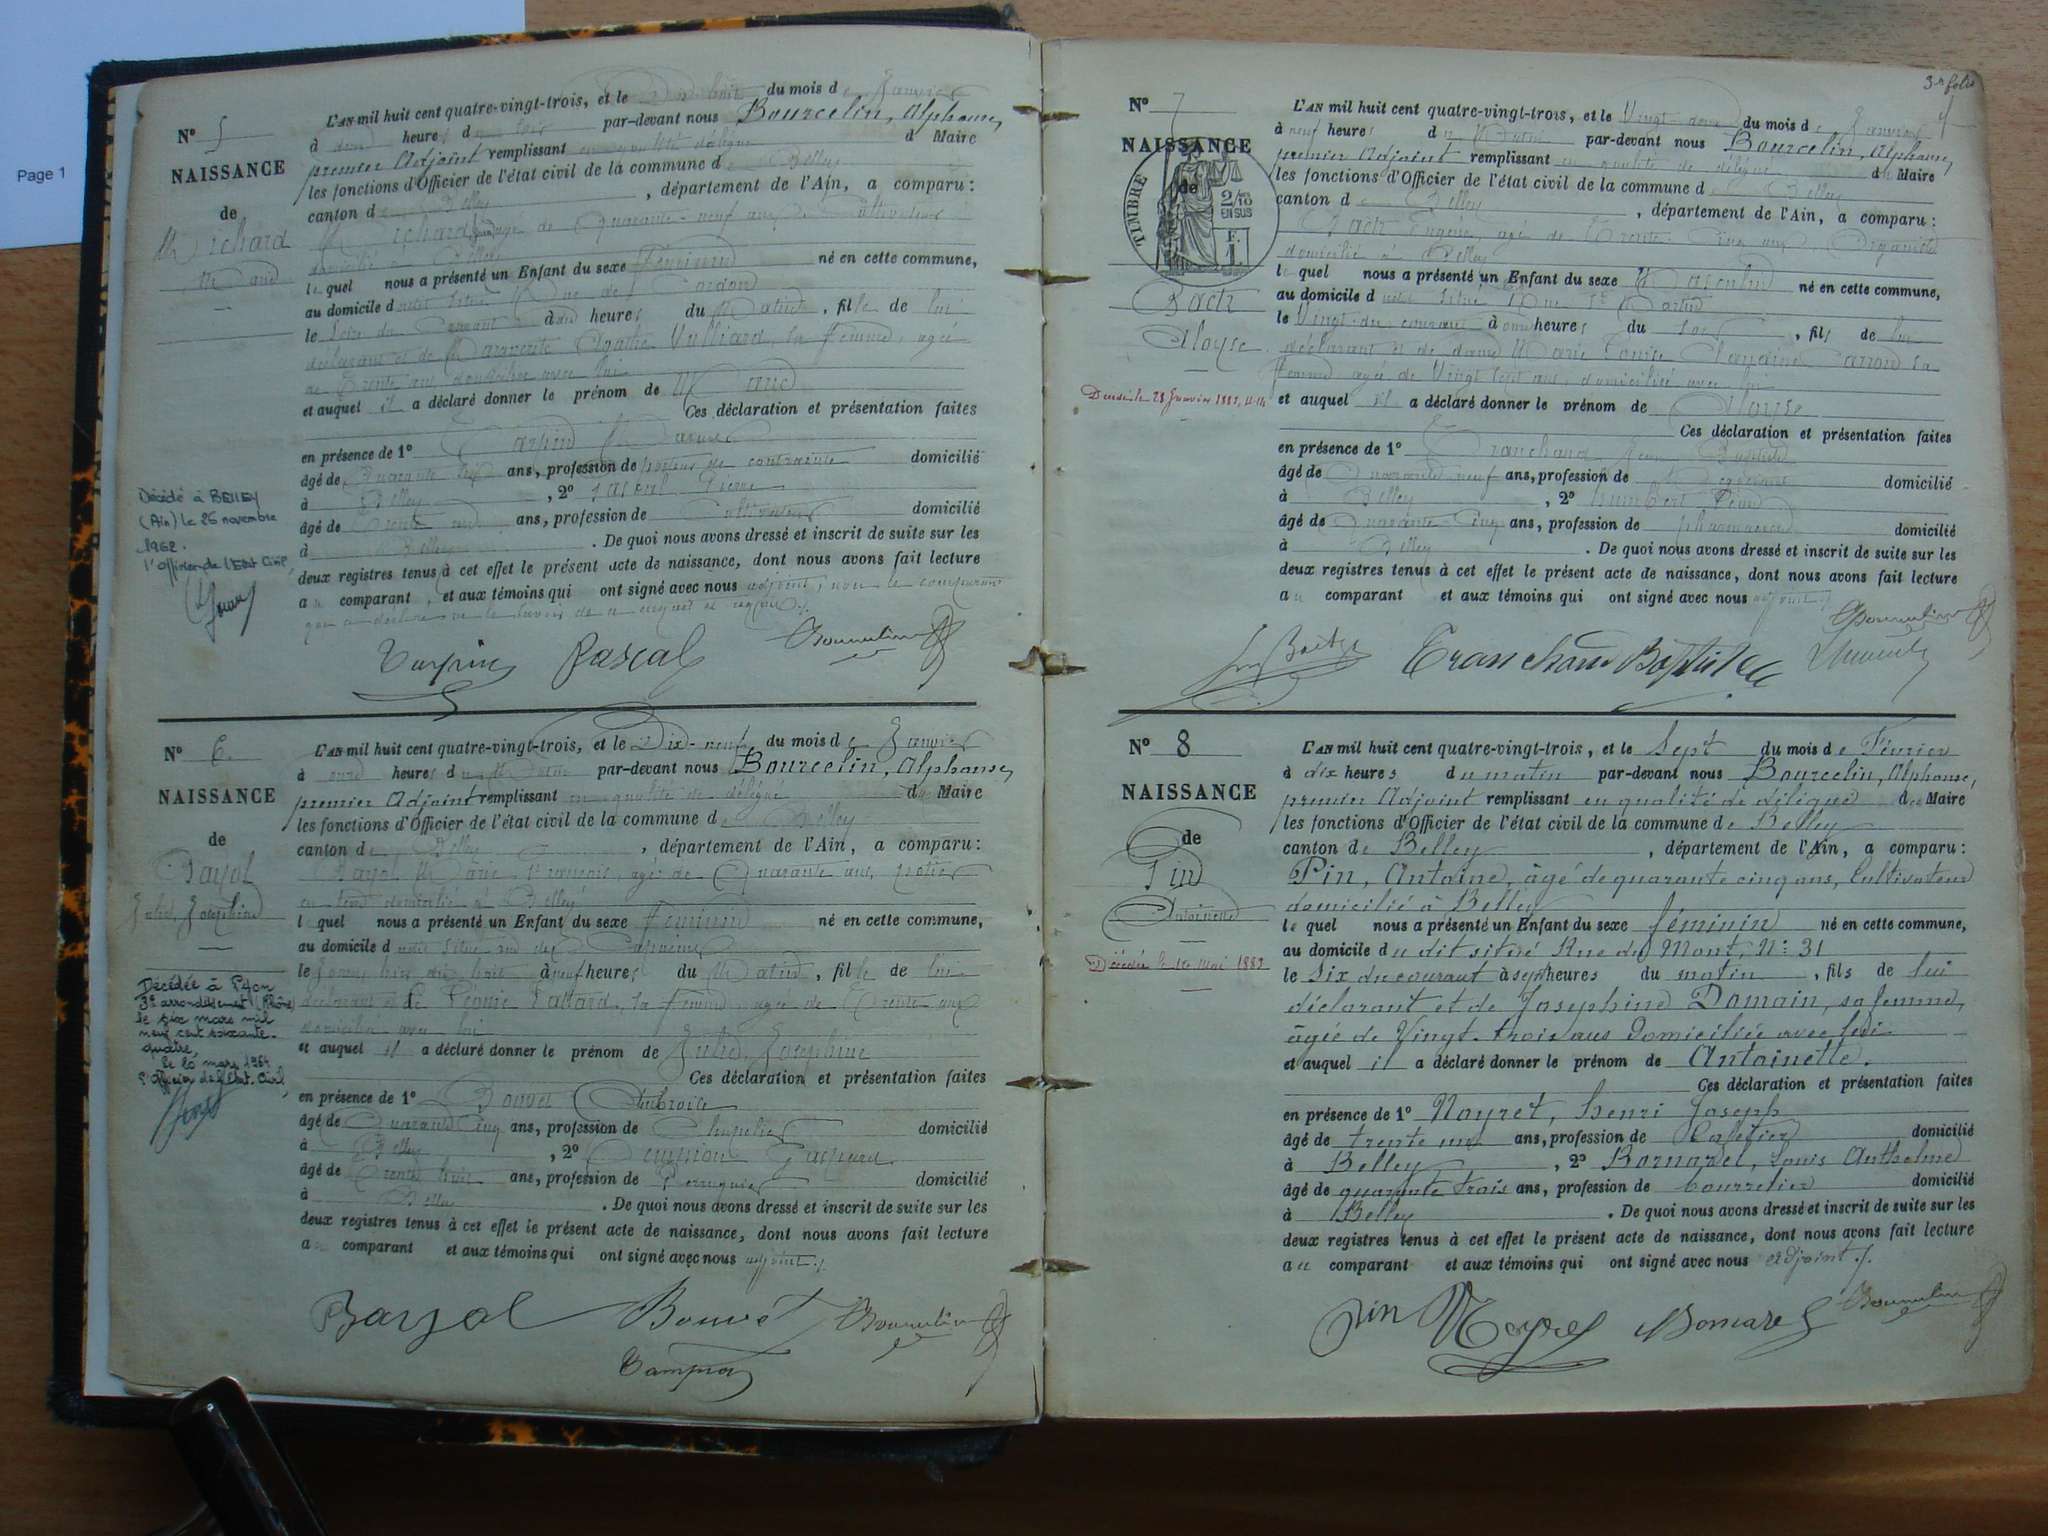 Page 1
N° 5
NAISSANCE
de
Richard
Marie
Décédé à BELLEY
(Ain) le 26 novembre
1962.
l'Officier de l'Etat Civil,
L'AN mil huit cent quatre-vingt-trois, et le Dix huit du mois de Janvier
à heures du soir par-devant nous Bourcelin, Alphonse,
premier Adjoint remplissant en qualité de délégué d Maire
les fonctions d'Officier de l'état civil de la commune de Belley
canton de Belley, département de l'Ain, a comparu:
Richard âgé de Quarante-neuf ans, cultivateur
domicilié à Belley
lequel nous a présenté un Enfant du sexe Féminin né en cette commune,
au domicile dudit situé Rue de
le courant à heures du Matin, fille de lui
déclarant et de Marguerite Agathe Vulliard, sa femme, âgée
de Trente ans, domiciliée avec lui
et auquel il a déclaré donner le prénom de Marie
Ces déclaration et présentation faites
en présence de 1°
âgé de Quarante neuf ans, profession de porteur de contrainte domicilié
à Belley, 2° Pascal Pierre
âgé de Trente ans, profession de cultivateur domicilié
à Belley. De quoi nous avons dressé et inscrit de suite sur les
deux registres tenus à cet effet le présent acte de naissance, dont nous avons fait lecture
au comparant, et aux témoins qui ont signé avec nous adjoint, non le comparant
qui a déclaré ne le savoir de ce enquis et requis ./.
Pascal Bourcelin
N° 6
NAISSANCE
de
Bayol
Julie, Joséphine
Décédée à Lyon
3e arrondissement (Rhône)
le six mars mil
neuf cent soixante-
quatre,
le 20 mars 1964
l'Officier de l'Etat-Civil,
L'AN mil huit cent quatre-vingt-trois, et le Dix-neuf du mois de Janvier
à onze heures du Matin par-devant nous Bourcelin, Alphonse,
premier Adjoint remplissant en qualité de délégué du Maire
les fonctions d'Officier de l'état civil de la commune de Belley
canton de Belley, département de l'Ain, a comparu:
Bayol, Marie François, âgé de Quarante ans,
domicilié à Belley
lequel nous a présenté un Enfant du sexe Féminin né en cette commune,
au domicile dudit situé rue des
le à neuf heures du Matin, fille de lui
déclarant et de sa femme, âgée de Trente ans
domiciliée avec lui
et auquel il a déclaré donner le prénom de Julie, Joséphine
Ces déclaration et présentation faites
en présence de 1° Bouvet Ambroise
âgé de Quarante Cinq ans, profession de Chapelier domicilié
à Belley, 2° Gaspard
âgé de Trente trois ans, profession de Perruquier domicilié
à Belley. De quoi nous avons dressé et inscrit de suite sur les
deux registres tenus à cet effet le présent acte de naissance, dont nous avons fait lecture
au comparant et aux témoins qui ont signé avec nous adjoint ./.
Bayol Bouvet Bourcelin
3e folio
N° 7
NAISSANCE
de
TIMBRE
2/10
EN SUS
Aloyse
Décédé le 28 Janvier 1883,
L'AN mil huit cent quatre-vingt-trois, et le Vingt deux du mois de Janvier
à neuf heures du Matin par-devant nous Bourcelin, Alphonse,
premier Adjoint remplissant en qualité de délégué du Maire
les fonctions d'Officier de l'état civil de la commune de Belley
canton de Belley, département de l'Ain, a comparu:
Eugène, âgé de Trente Cinq ans, Organiste
domicilié à Belley
lequel nous a présenté un Enfant du sexe Masculin né en cette commune,
au domicile dudit situé Rue St Martin
le Vingt du courant à onze heures du soir, fils de lui
déclarant et de dame Marie Louise Claudine sa
femme, âgée de Vingt sept ans, domiciliée avec lui
et auquel il a déclaré donner le prénom de Aloyse
Ces déclaration et présentation faites
en présence de 1° Tranchand Jean Baptiste
âgé de Quarante neuf ans, profession de domicilié
à Belley, 2° Humbert
âgé de Quarante Cinq ans, profession de pharmacien domicilié
à Belley. De quoi nous avons dressé et inscrit de suite sur les
deux registres tenus à cet effet le présent acte de naissance, dont nous avons fait lecture
au comparant et aux témoins qui ont signé avec nous adjoint ./.
Tranchand Baptiste Bourcelin
N° 8
NAISSANCE
de
Pin
Antoinette
Décédée le 1er Mai 1883
L'AN mil huit cent quatre-vingt-trois, et le Sept du mois de Février
à dix heures du matin par-devant nous Bourcelin, Alphonse,
premier Adjoint remplissant en qualité de délégué du Maire
les fonctions d'Officier de l'état civil de la commune de Belley
canton de Belley, département de l'Ain, a comparu:
Pin, Antoine, âgé de quarante cinq ans, Cultivateur
domicilié à Belley
lequel nous a présenté un Enfant du sexe féminin né en cette commune,
au domicile du dit situé Rue du Mont, N: 31
le Six du courant à sept heures du matin, fils de lui
déclarant et de Josephine Domain, sa femme,
âgée de Vingt-trois ans Domiciliée avec lui
et auquel il a déclaré donner le prénom de Antoinette.
Ces déclaration et présentation faites
en présence de 1° Noyret, henri Joseph
âgé de trente un ans, profession de Cafetier domicilié
à Belley, 2° Bornarel, Louis Anthelme
âgé de quarante trois ans, profession de bourrelier domicilié
à Belley. De quoi nous avons dressé et inscrit de suite sur les
deux registres tenus à cet effet le présent acte de naissance, dont nous avons fait lecture
au comparant et aux témoins qui ont signé avec nous adjoint ./.
Pin Noyret Bornarel Bourcelin